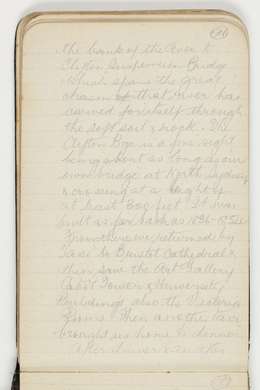 the bank of the Avon to
Clifton Suspension Bridge
which spans the great
chasm that river has
carved for itself through
the soft soil & rock. The
Clifton Bge is a fine sight
being about as long as our
own bridge at North Sydney
& crossing at a height of
at least 300 feet. It was
built as far back as
From there we returned by
to Bristol Cathedral &
then saw the Art Gallery
Cabot Tower & University
Buildings also the Victoria
Rooms. Then another car
brought us home to dinner.
After dinner